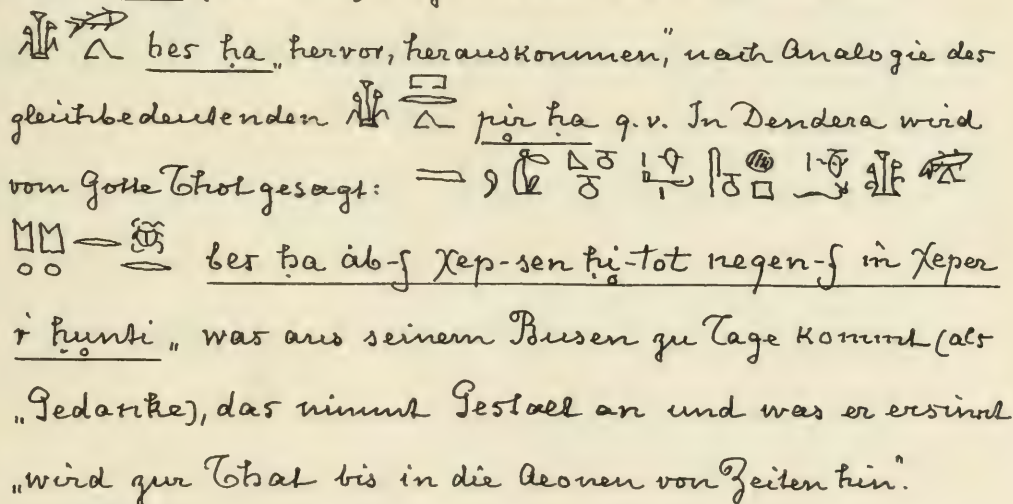 bes ḥa „hervor, herauskommen," nach Analogie des
gleichbedeutenden pir ḥa q.v. In Dendera wird
vom Gotte Thot gesagt:
bes ḥa àb-f χep-sen ḥi-tot negen-f m χeper
r ḥunti „was aus seinem Busen zu Tage kommt (als
„Gedanke), das nimmt Gestalt an und was er ersinnt
„wird zur That bis in die Aeonen von Zeiten hin".